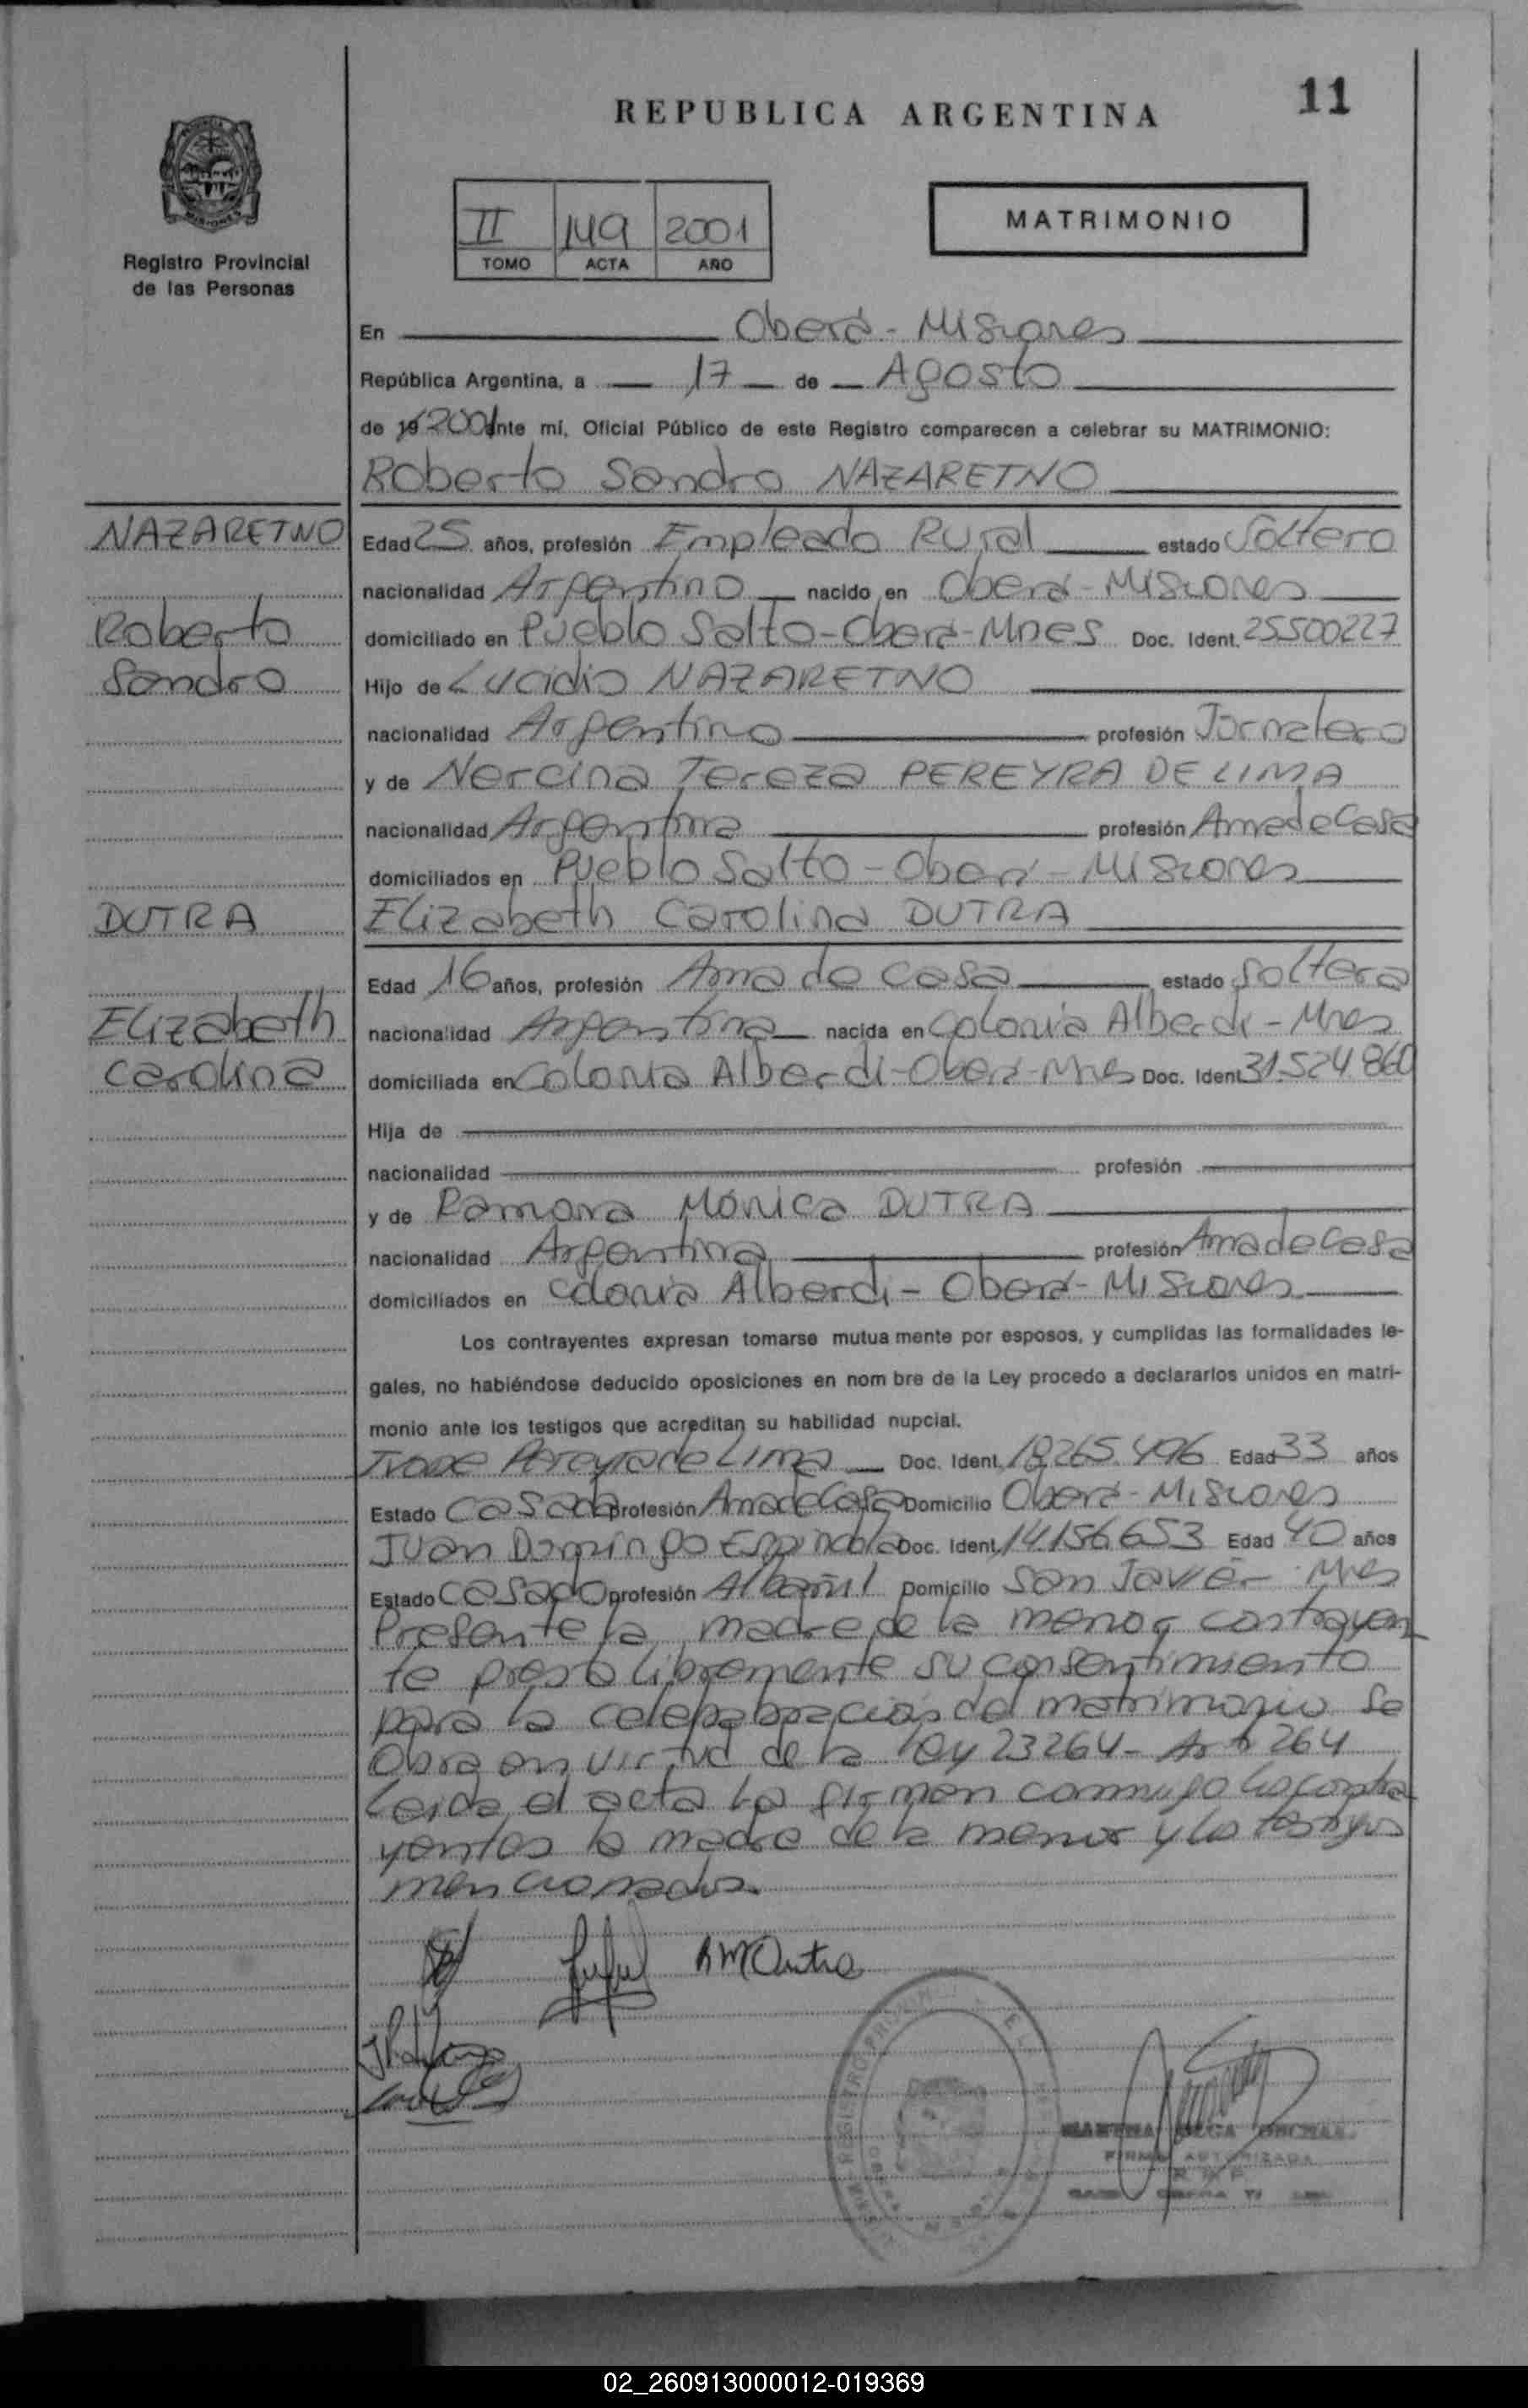 11
REPUBLICA ARGENTINA
Registro Provincial
de las Personas
II 149 2001
TOMO ACTA AÑO
MATRIMONIO
En Oberá - Misiones
República Argentina, a 17 de Agosto
de 19 2001 ante mí, Oficial Público de este Registro comparecen a celebrar su MATRIMONIO:
Roberto Sandro NAZARETNO
NAZARETNO
Edad 25 años, profesión Empleado Rural estado Soltero
nacionalidad Argentino nacido en Oberá - Misiones
Roberto
domiciliado en Pueblo Salto - Oberá - Mnes Doc. Ident. 25500227
Sandro
Hijo de Lucidio NAZARETNO
nacionalidad Argentino profesión Jornalero
y de Nercina Tereza PEREYRA DE LIMA
nacionalidad Argentina profesión Ama de Casa
domiciliados en Pueblo Salto - Oberá - Misiones
DUTRA
Elizabeth Carolina DUTRA
Edad 16 años, profesión Ama de Casa estado Soltera
Elizabeth
nacionalidad Argentina nacida en Colonia Alberdi - Mnes
Carolina
domiciliada en Colonia Alberdi - Oberá - Mnes Doc. Ident 31.524.860
Hija de
nacionalidad profesión
y de Ramona Mónica DUTRA
nacionalidad Argentina profesión Ama de Casa
domiciliados en Colonia Alberdi - Oberá - Misiones
Los contrayentes expresan tomarse mutua mente por esposos, y cumplidas las formalidades le-
gales, no habiéndose deducido oposiciones en nom bre de la Ley procedo a declararlos unidos en matri-
monio ante los testigos que acreditan su habilidad nupcial.
Pereyra de Lima Doc. Ident. 18.265.496 Edad 33 años
Estado Casada profesión Ama de Casa Domicilio Oberá - Misiones
Juan Domingo Espindola Doc. Ident. 14.156.653 Edad 40 años
Estado Casado profesión Albañil Domicilio San Javier - Mnes
Presente la madre de la menor contrayen
te presta libremente su consentimiento
para la del matrimonio se
obra en virtud de la Ley 23264 - Art 264
Leida el acta la firman conmigo los contra
yentes la madre de la menor y los testigos
mencionados.
RMDutra
FIRMA AUTORIZADA
02_260913000012-019369